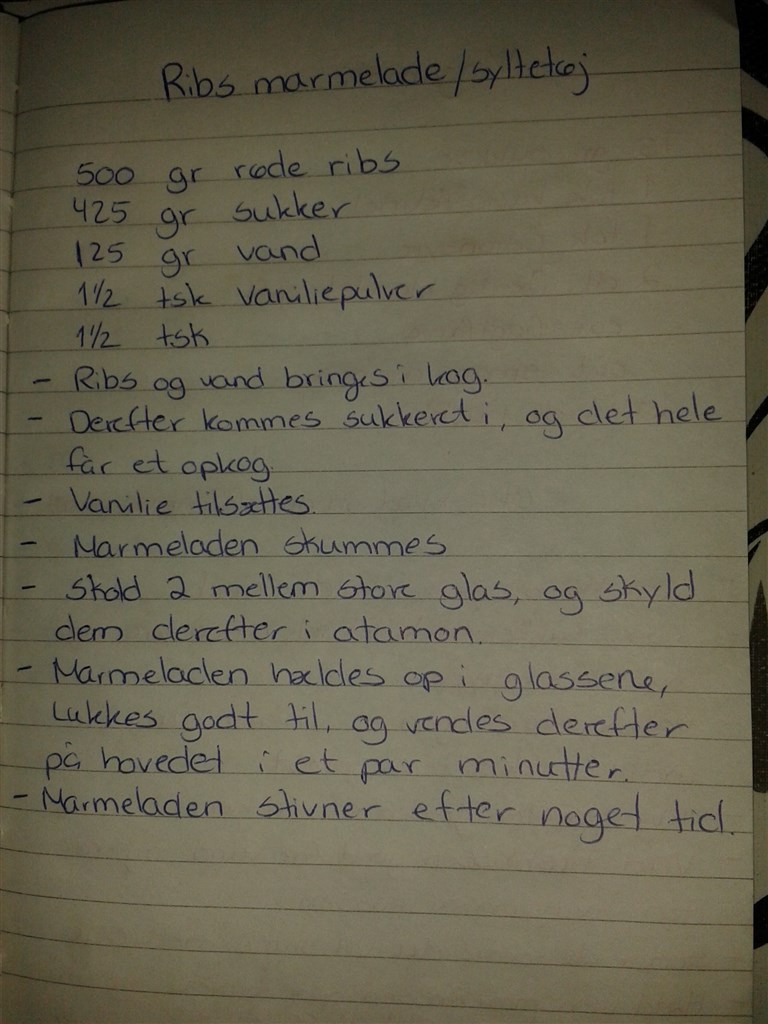 Ribs marmelade/syltetøj
500 gr røde ribs
425 gr sukker
125 gr vand
1 1/2 tsk vaniliepulver
1 1/2 tsk
- Ribs og vand bringes i kog.
- Derefter kommes sukkeret i, og det hele
får et opkog.
- Vanilie tilsættes.
- Marmeladen skummes
- Skold 2 mellem store glas, og skyld
dem derefter i atamon.
- Marmeladen hældes op i glassene,
lukkes godt til, og vendes derefter
på hovedet i et par minutter.
- Marmeladen stivner efter noget tid.